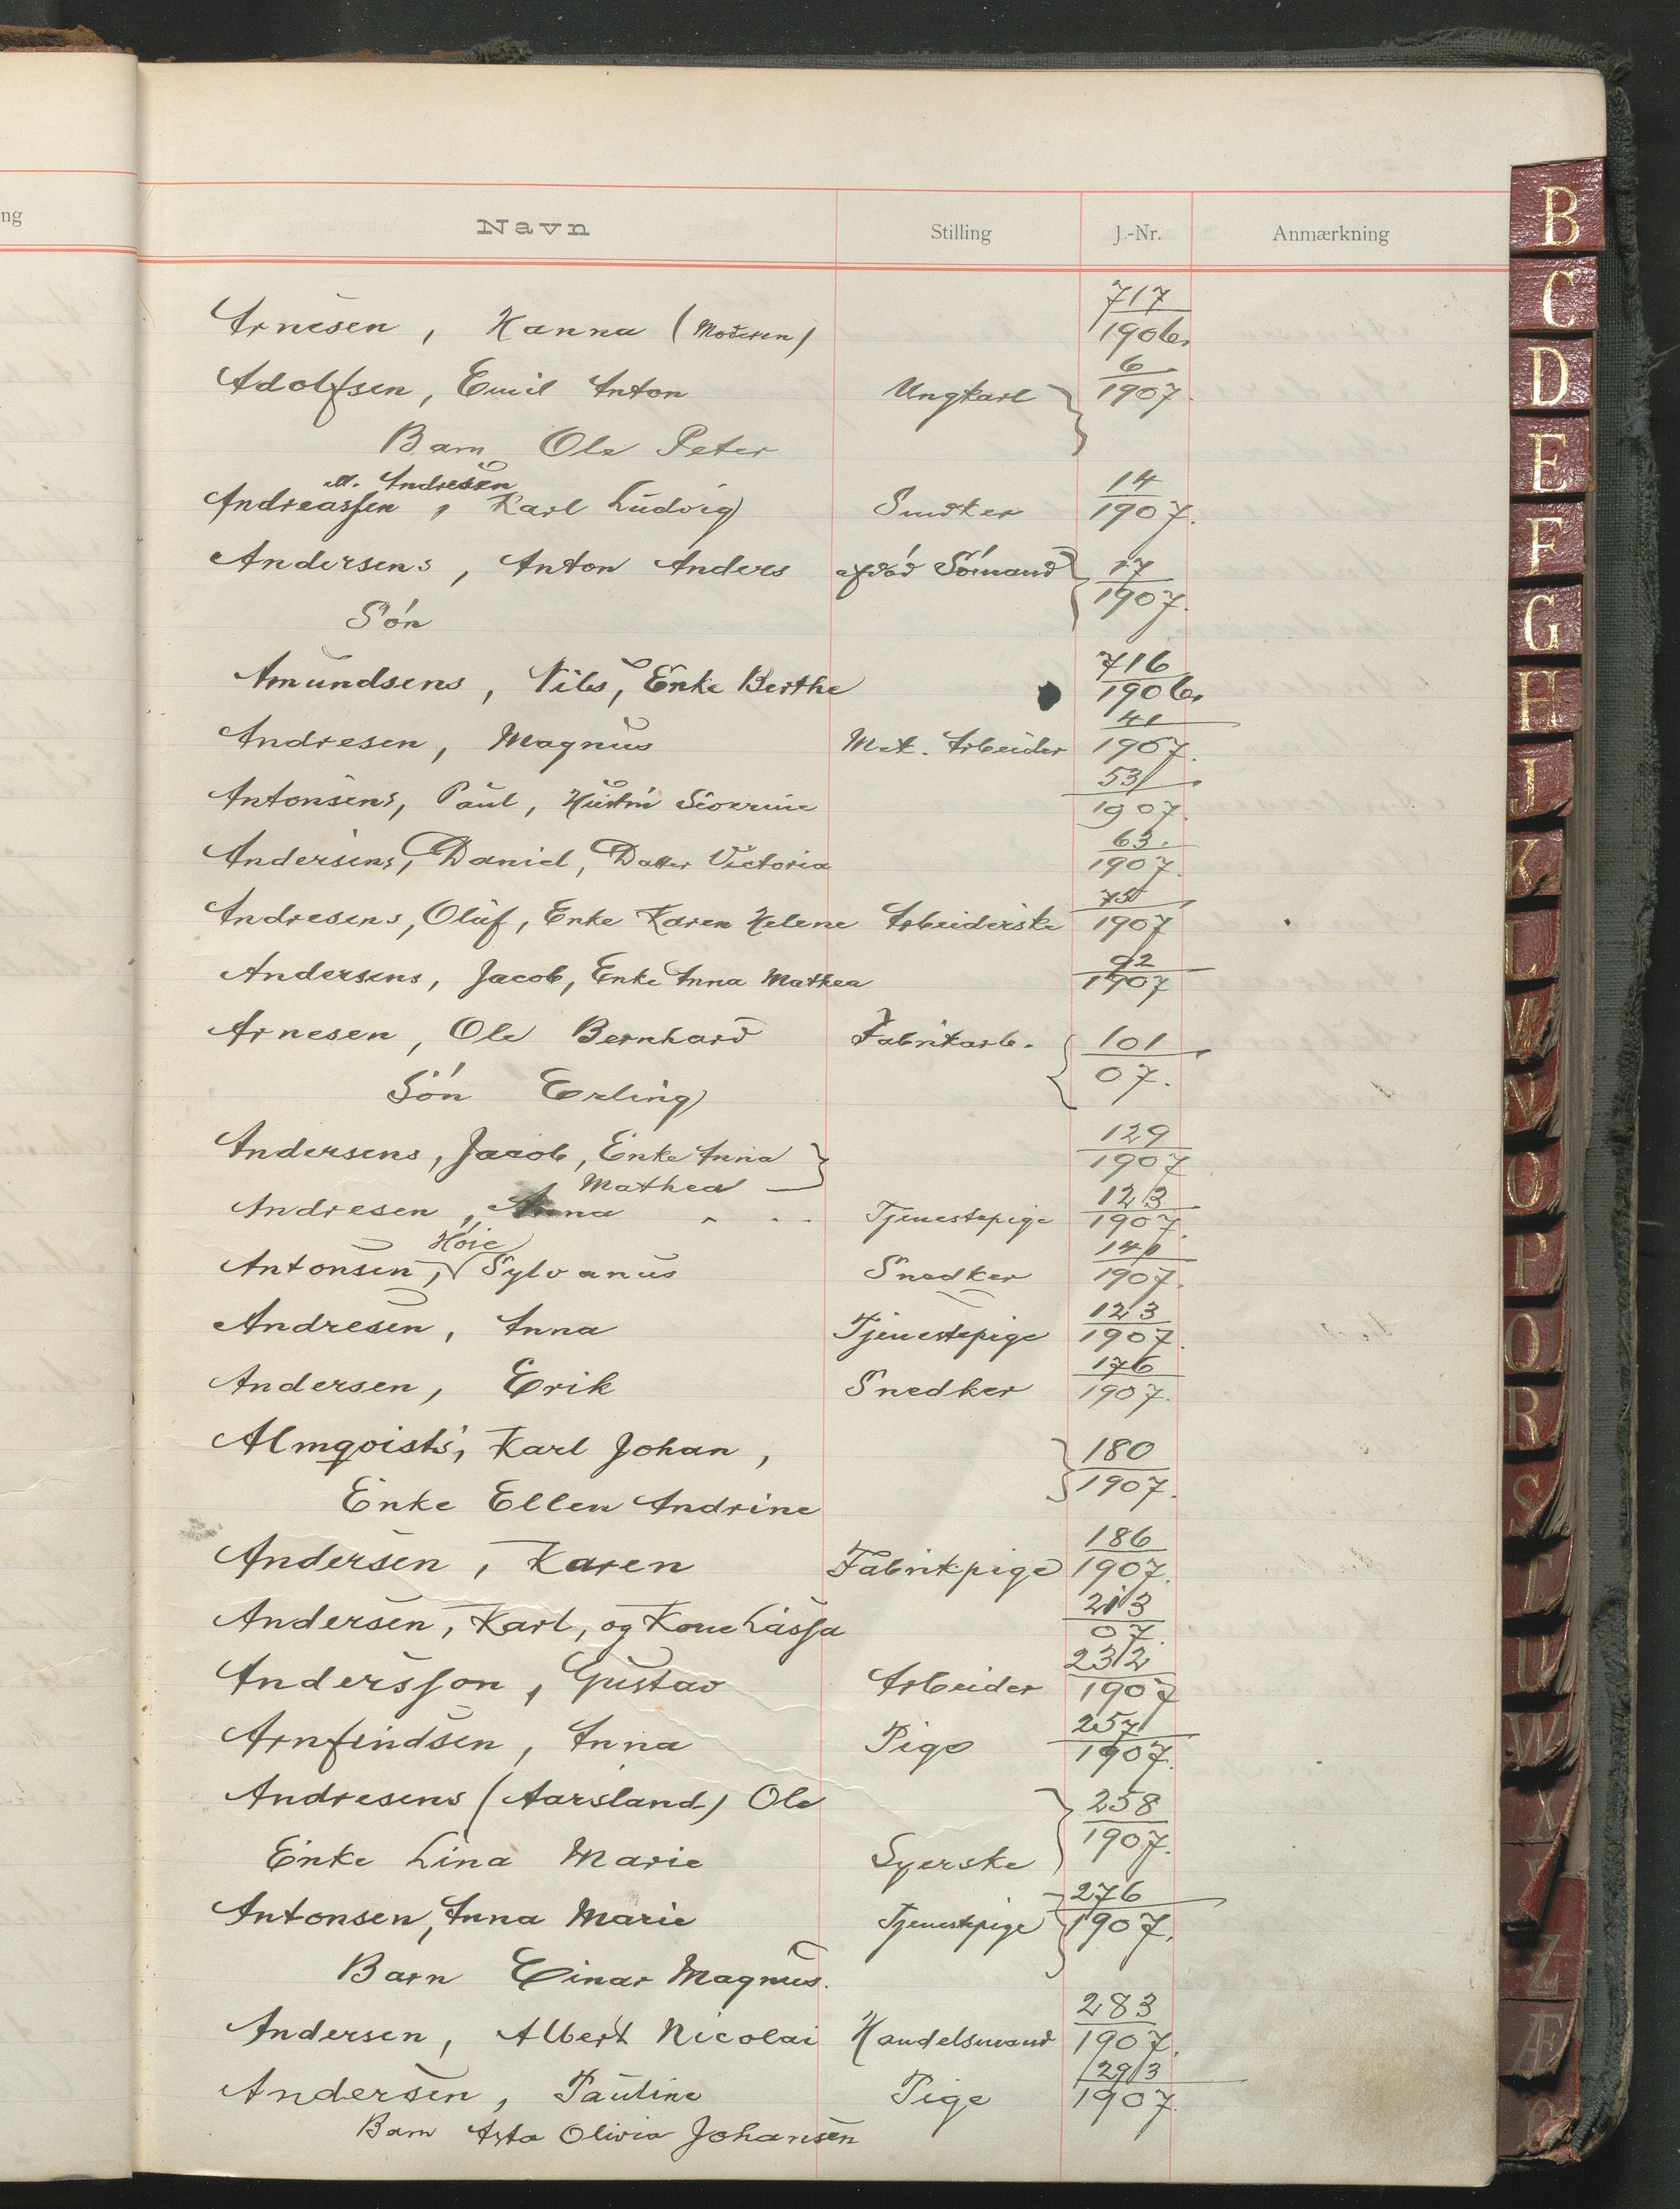 ng
Navn Stilling J.-Nr. Anmærkning
Arnesen, Hanna (Moderen) 717/1906.
Adolfsen, Emil Anton Ungkarl 6/1907.
Barn Ole Peter
all. Andresen
Andreassen, Karl Ludvig Smedker 14/1907.
Andersens, Anton Anders afdød Sömand 17/1907.
Sön
Amundsens, Nils, Enke Berthe 716/1906.
Andresen, Magnus Mek. Arbeider 41/1907.
Antonsens, Paul, Hustru Severine 53/1907.
Andersens, Daniel, Datter Victoria 63./1907.
Andresens, Oluf, Enke Karen Helene Arbeiderske 75/1907
Andersens, Jacob, Enke Anna Mathea 92/1907
Arnesen, Ole Bernhard Fabrikarb. 101/07.
Sön Erling
Andersens, Jacob, Enke Anna 129/1907
Mathea
Andresen, Anna Tjenestepige 123/1907.
Höie
Antonsen, Sylvanus Snedker 141/1907.
Andresen, Anna Tjenestepige 123/1907.
Andersen, Erik Snedker 176/1907.
Almqvists, Karl Johan, 180/1907.
Enke Ellen Andrine
Andersen, Karen Fabrikpige 186/1907.
Andersen, Karl, og Kone Lassa 213/07.
Andersson, Gustav Arbeider 232/1907
Arnfindsen, Anna Pige 257/1907.
Andresens (Aarsland) Ole 258/1907.
Enke Lina Marie Syerske
Antonsen, Anna Marie Tjenestpige 276/1907.
Barn Einar Magnus.
Andersen, Albert Nicolai Handelsmand 283/1907.
Andersen, Pauline Pige 293/1907
Barn Asta Olivia Johansen
B
C
D
E
F
G
H
J
K
L
M
N
O
P
Q
R
S
T
U
W
X
Z
Æ